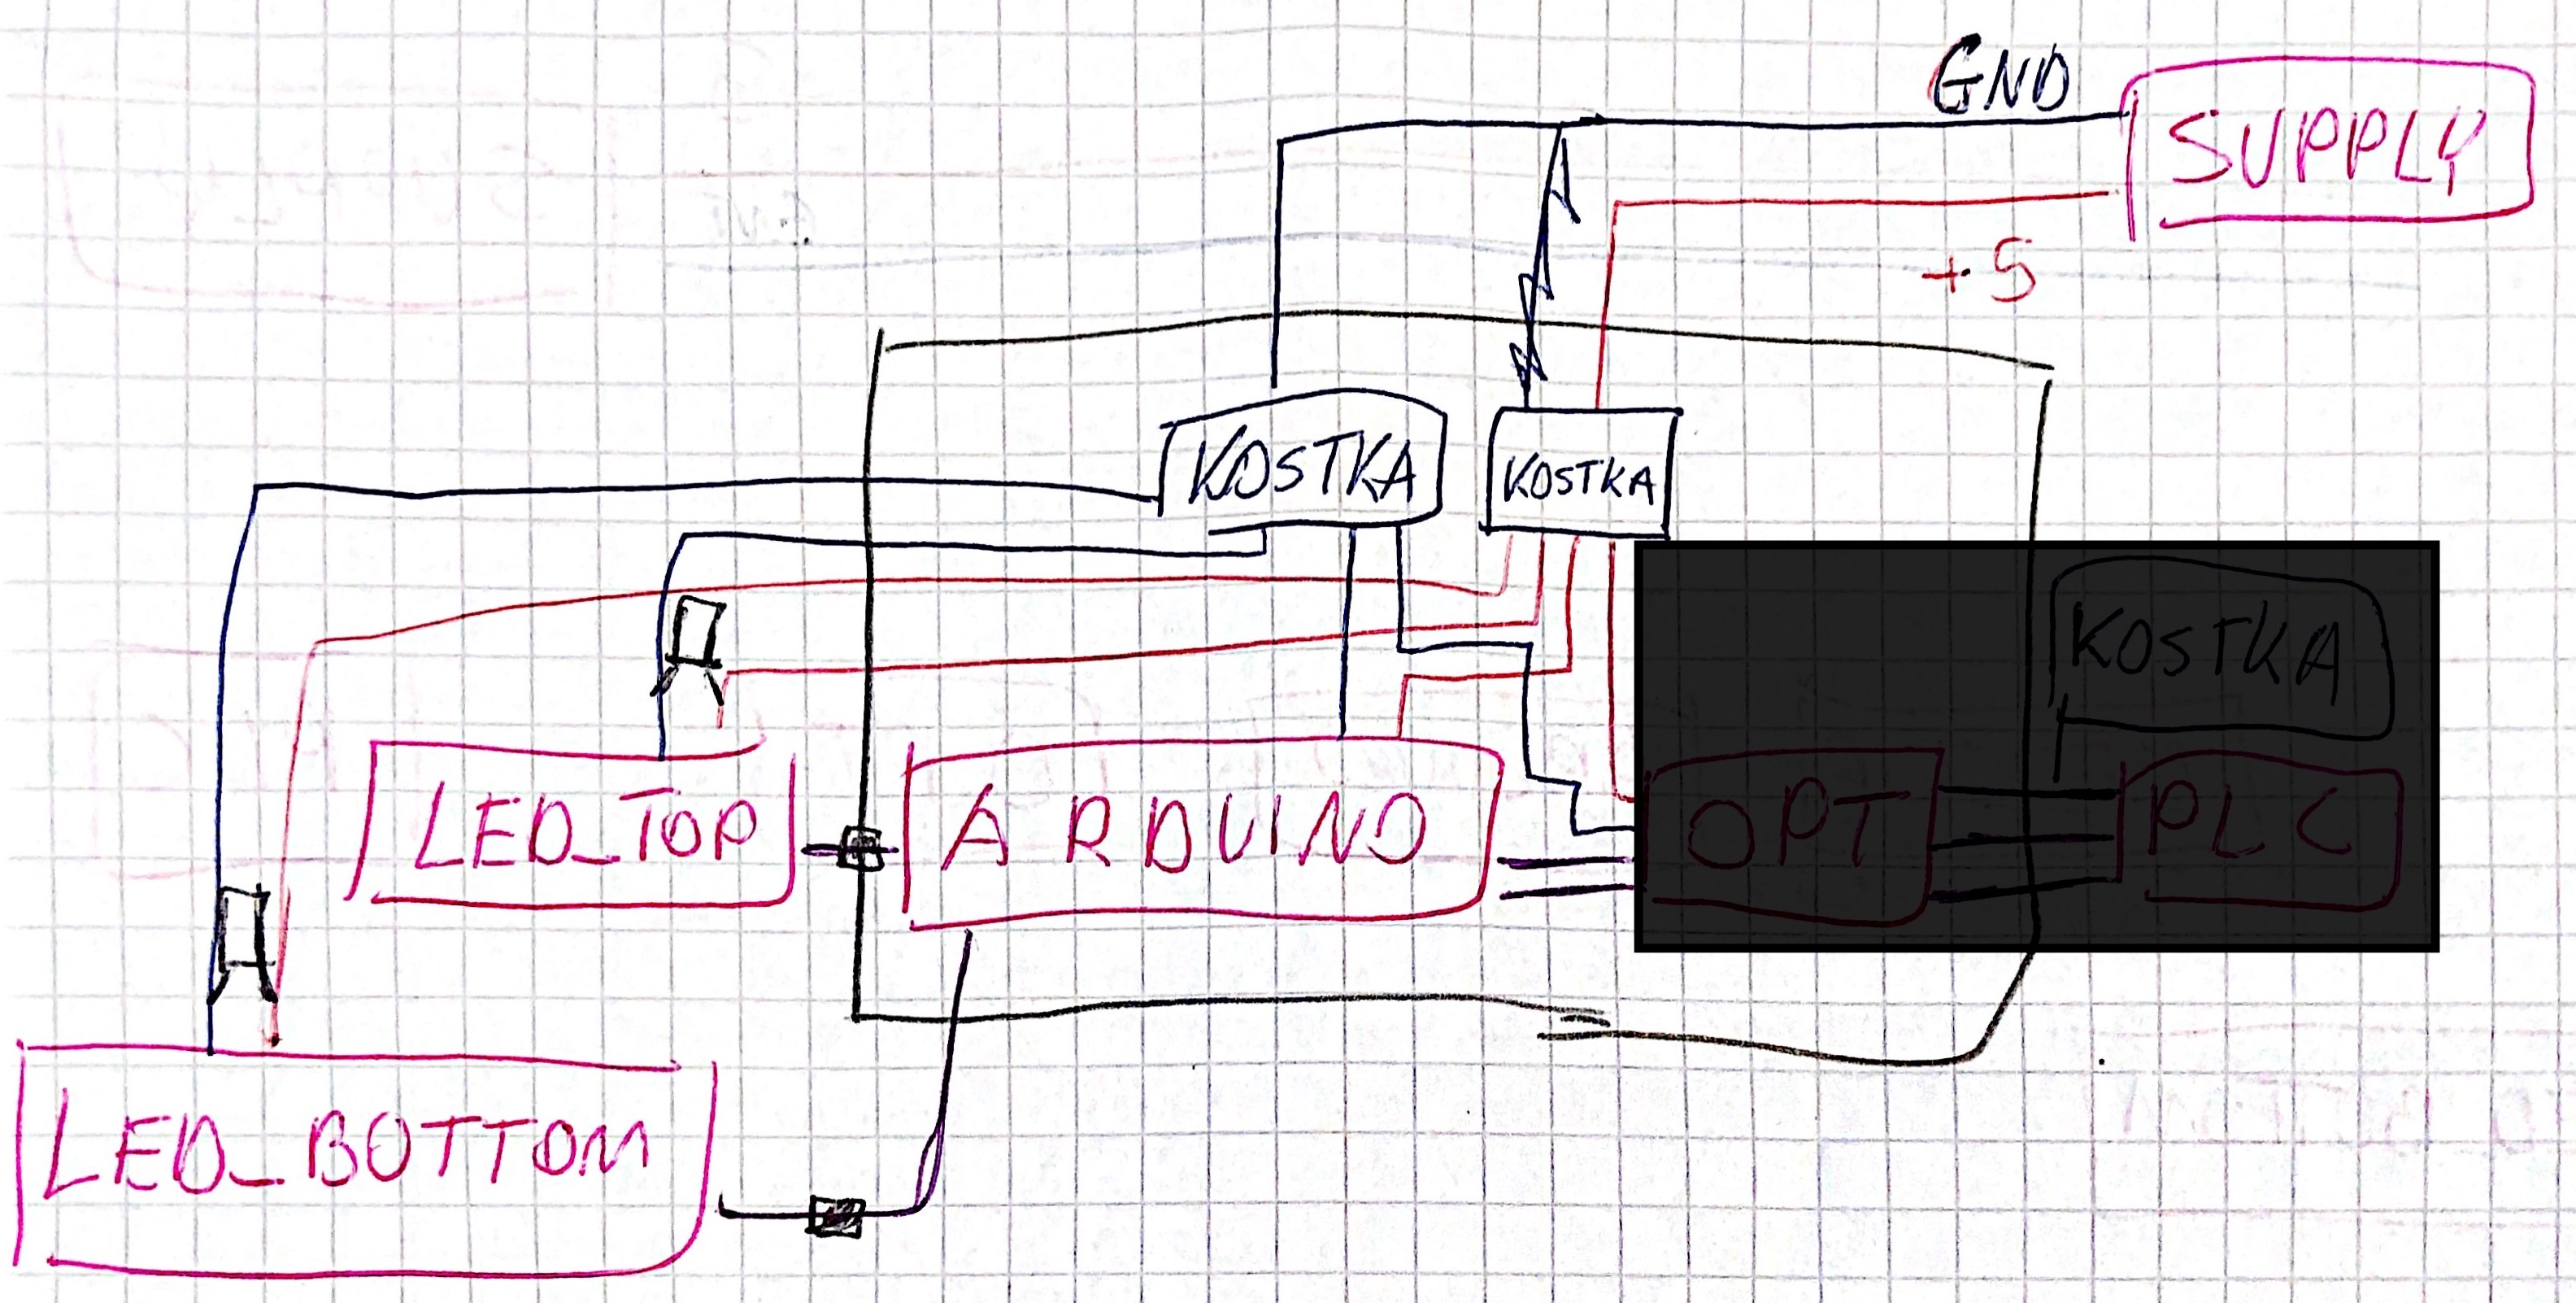 GND
SUPPLY
+5
KOSTKA
KOSTKA
KOSTKA
LED_TOP
ARDUINO
OPT
PLC
LED_BOTTOM